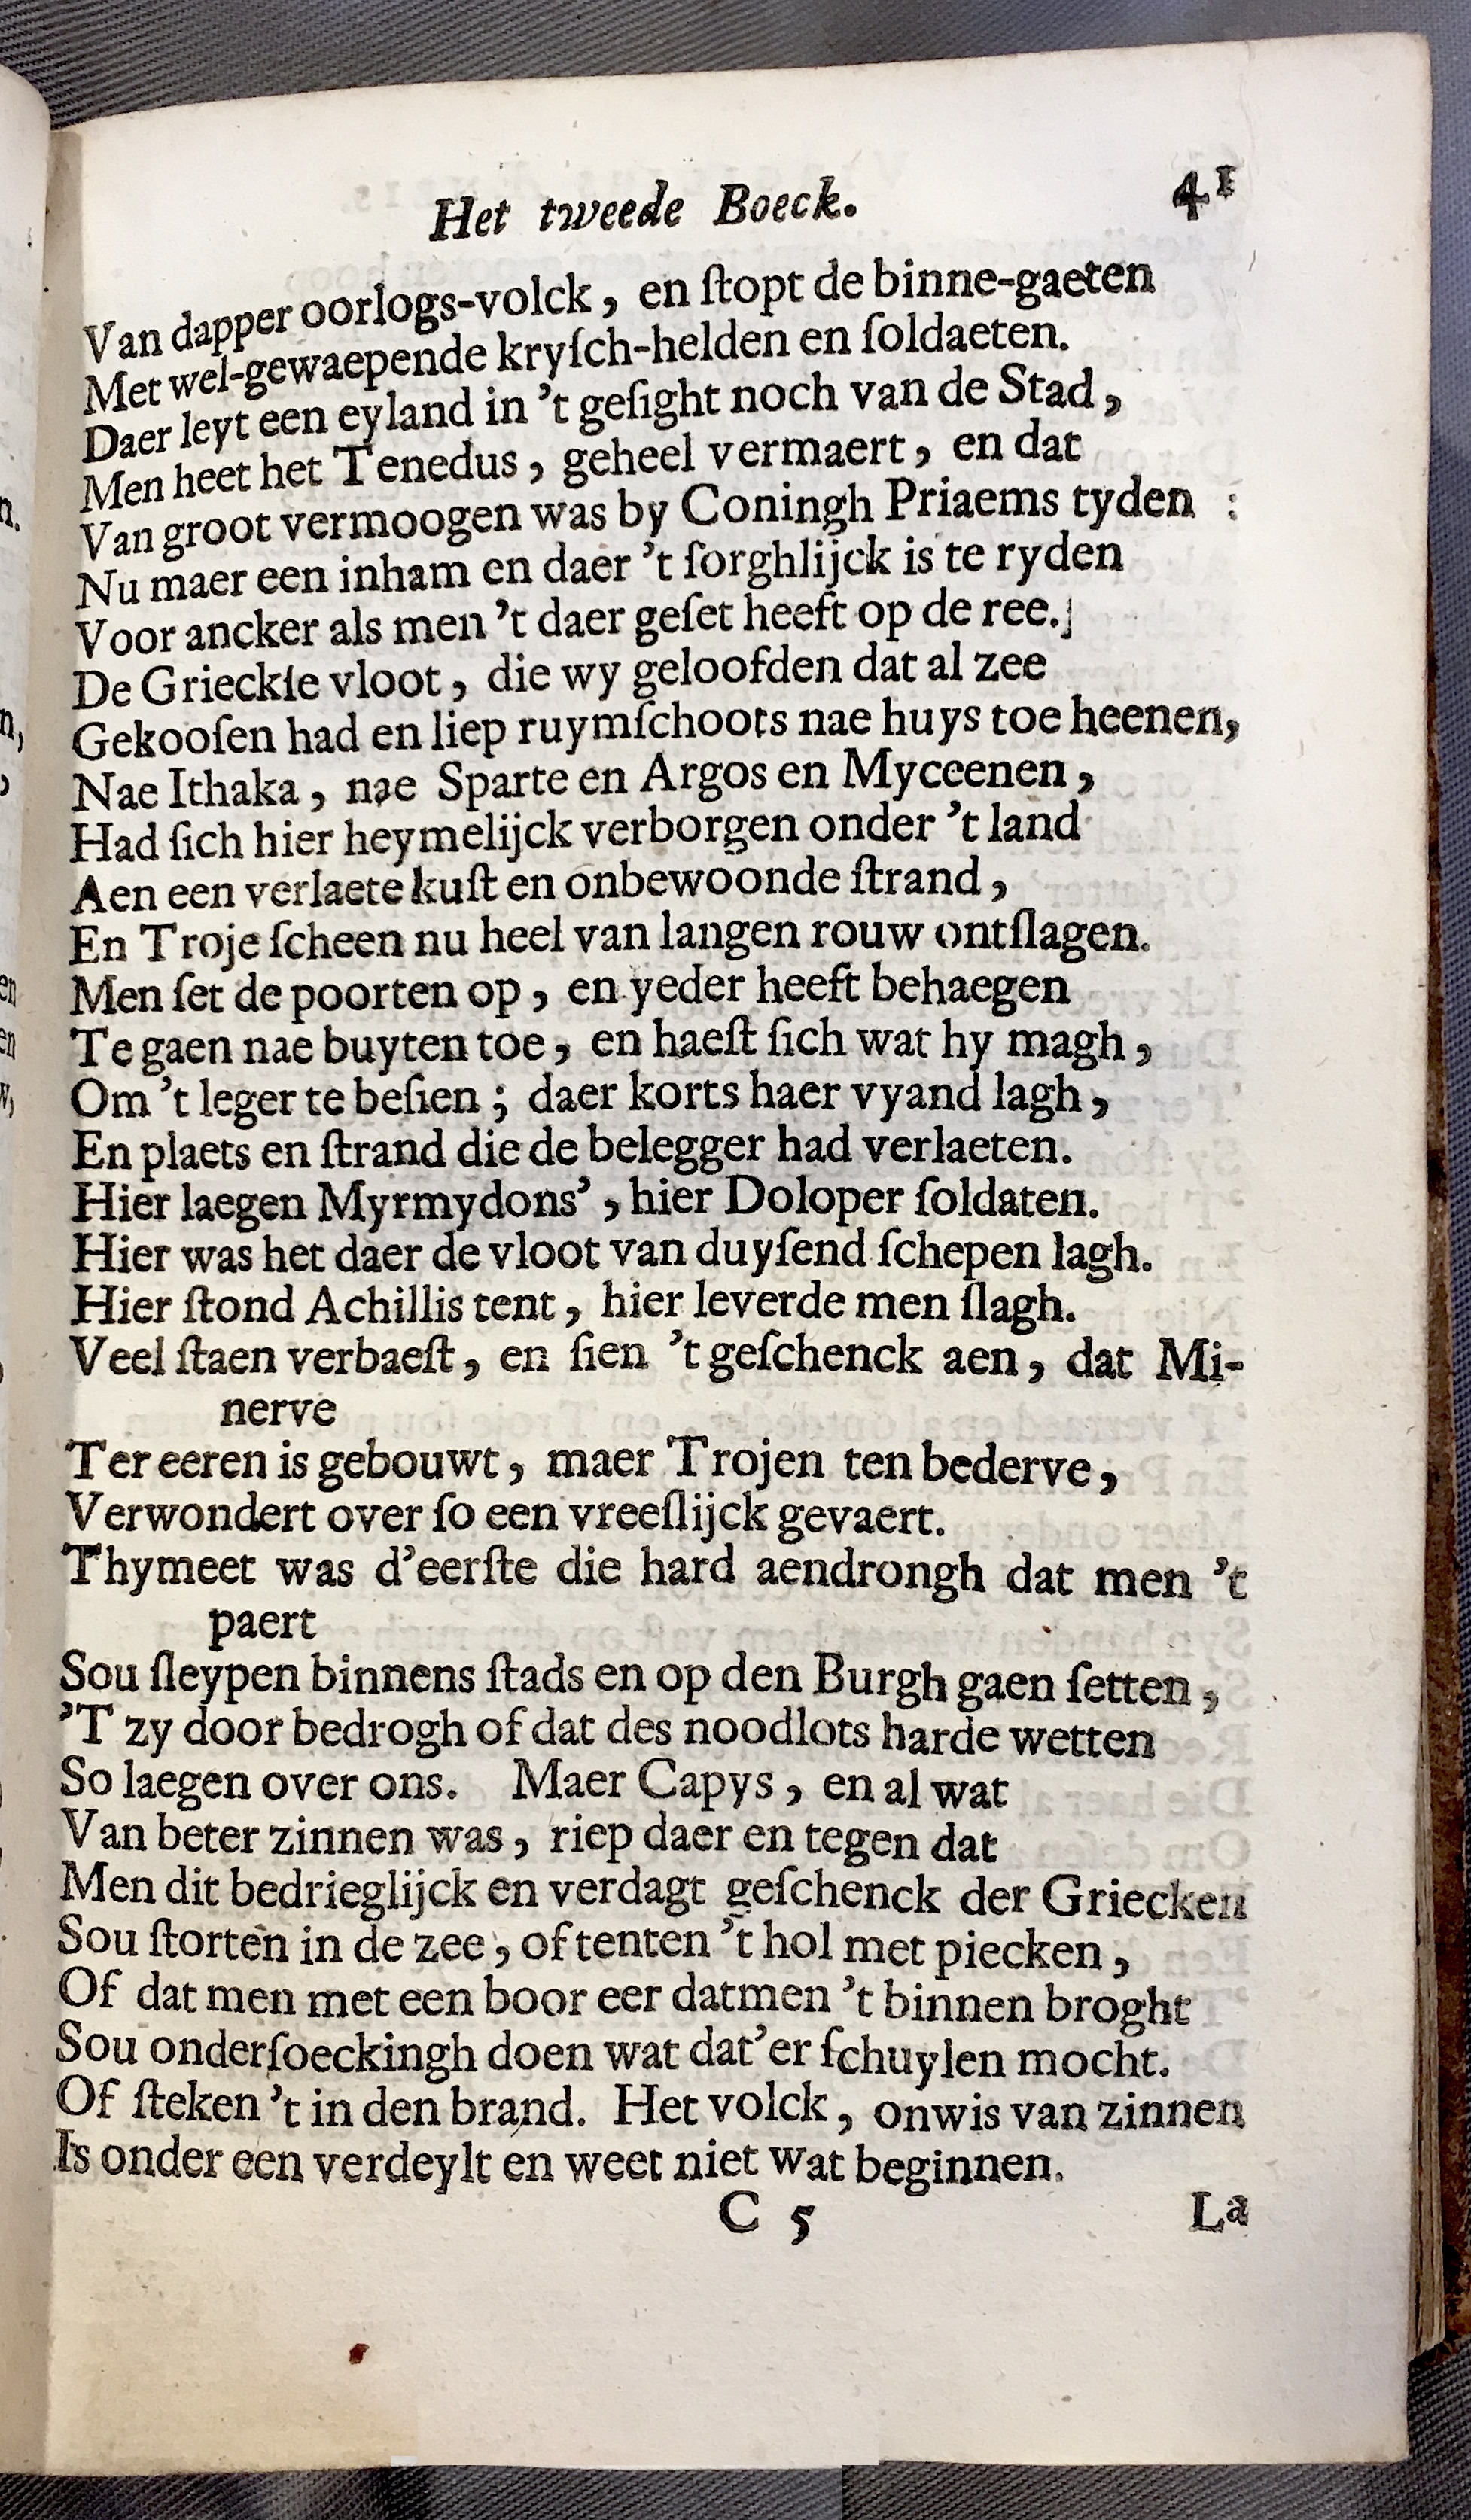 Het tweede Boeck. 41
Van dapper oorlogs-volck, en ſtopt de binne-gaeten
Met wel-gewaepende kryſch-helden en ſoldaeten.
Daer leyt een eyland in 't geſight noch van de Stad,
Men heet het Tenedus, geheel vermaert, en dat
Van groot vermoogen was by Coningh Priaems tyden :
Nu maer een inham en daer 't ſorghlijck is te ryden
Voor ancker als men 't daer geſet heeft op de ree.
De Grieckſe vloot, die wy geloofden dat al zee
Gekooſen had en liep ruymſchoots nae huys toe heenen,
Nae Ithaka, nae Sparte en Argos en Myceenen,
Had ſich hier heymelijck verborgen onder 't land
Aen een verlaete kuſt en onbewoonde ſtrand,
En Troje ſcheen nu heel van langen rouw ontſlagen.
Men ſet de poorten op, en yeder heeft behaegen
Te gaen nae buyten toe, en haeſt ſich wat hy magh,
Om 't leger te beſien ; daer korts haer vyand lagh,
En plaets en ſtrand die de belegger had verlaeten.
Hier laegen Myrmydons', hier Doloper ſoldaten.
Hier was het daer de vloot van duyſend ſchepen lagh.
Hier ſtond Achillis tent, hier leverde men ſlagh.
Veel ſtaen verbaeſt, en ſien 't geſchenck aen, dat Mi-
nerve
Ter eeren is gebouwt, maer Trojen ten bederve,
Verwondert over ſo een vreeſlijck gevaert.
Thymeet was d'eerſte die hard aendrongh dat men 't
paert
Sou ſleypen binnens ſtads en op den Burgh gaen ſetten,
'T zy door bedrogh of dat des noodlots harde wetten
So laegen over ons. Maer Capys, en al wat
Van beter zinnen was, riep daer en tegen dat
Men dit bedrieglijck en verdagt geſchenck der Griecken
Sou ſtorten in de zee, of tenten 't hol met piecken,
Of dat men met een boor eer datmen 't binnen broght
Sou onderſoeckingh doen wat dat'er ſchuylen mocht.
Of ſteken 't in den brand. Het volck, onwis van zinnen
Is onder een verdeylt en weet niet wat beginnen.
C 5 La